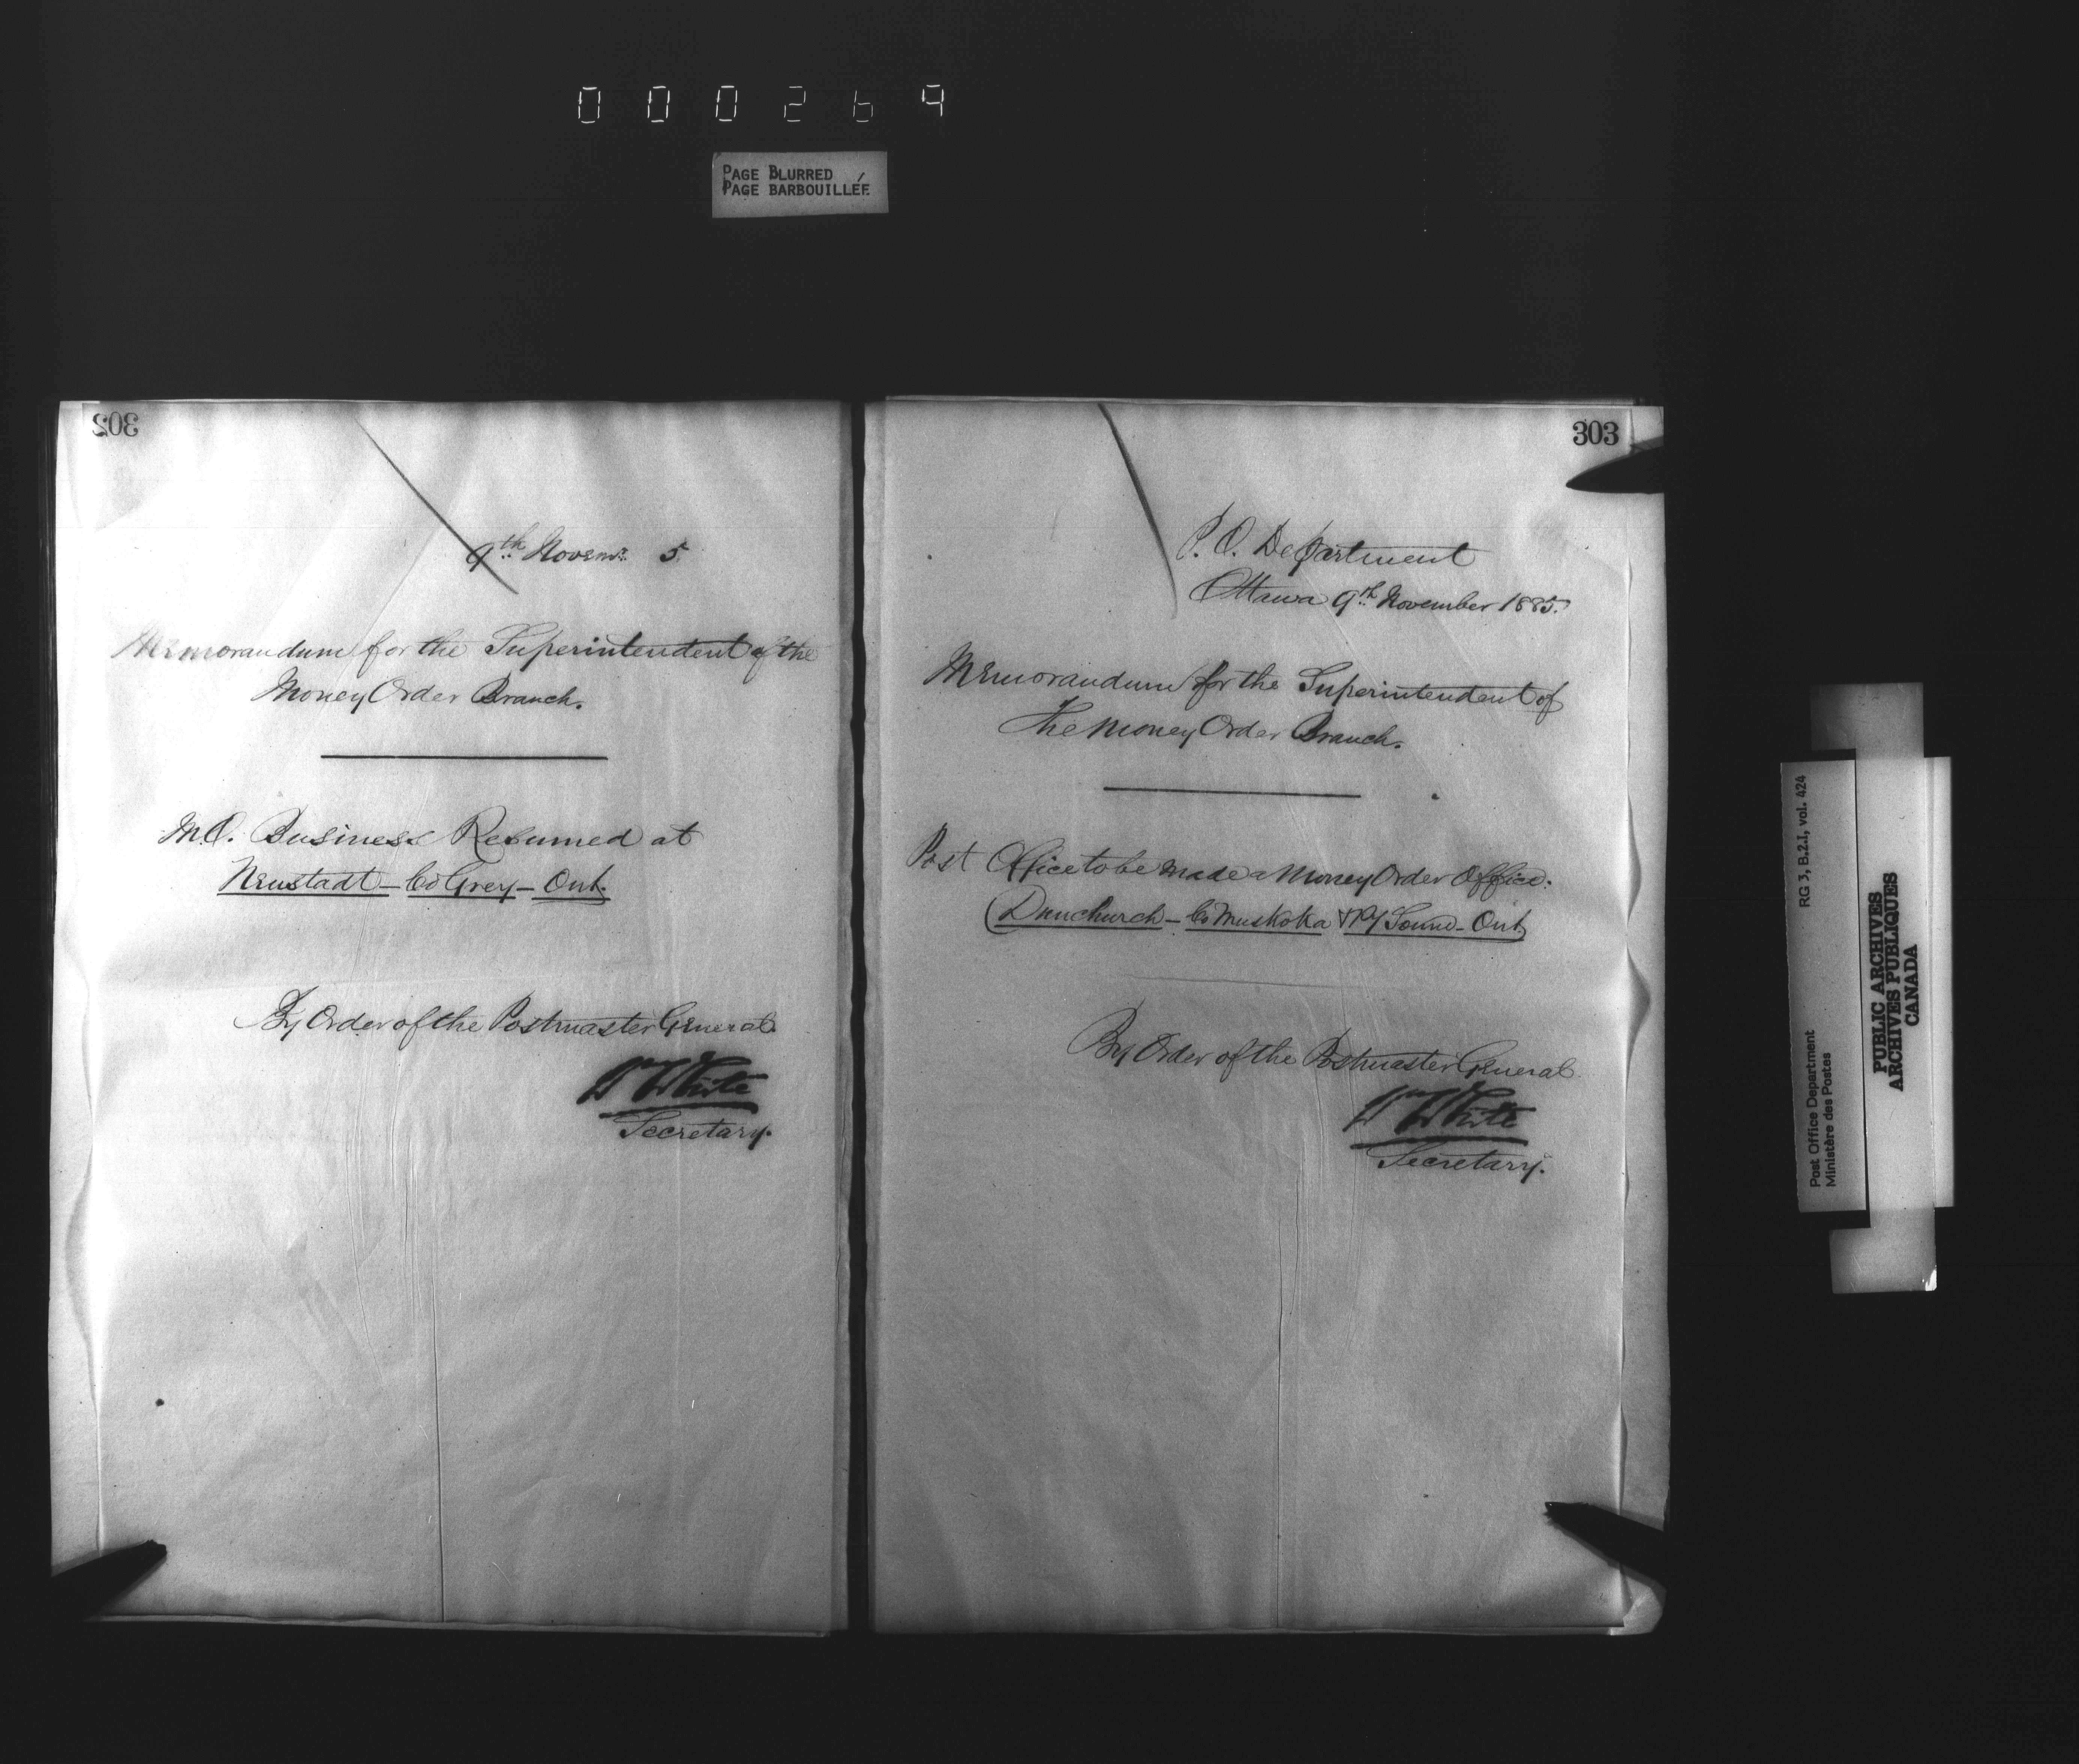 000269
PAGE BLURRED
PAGE BARBOUILLÉE
302
9th Novemr. 5
Memorandum for the Superintendent of the
Money Order Branch.
M.O. Business Resumed at
Neustadt – Co Grey – Ont.
By Order of the Postmaster General.
Wm White
Secretary.
303
P. O. Department
Ottawa 9th November 1885.
Memorandum for the Superintendent of
The Money Order Branch.
Post Office to be made a Money Order Office.
(Dunchurch – Co Muskoka & Py Sound – Ont)
By Order of the Postmaster General.
Wm White
Secretary.
RG 3, B.2.1, vol. 424
Post Office Department
Ministère des Postes
PUBLIC ARCHIVES
ARCHIVES PUBLIQUES
CANADA